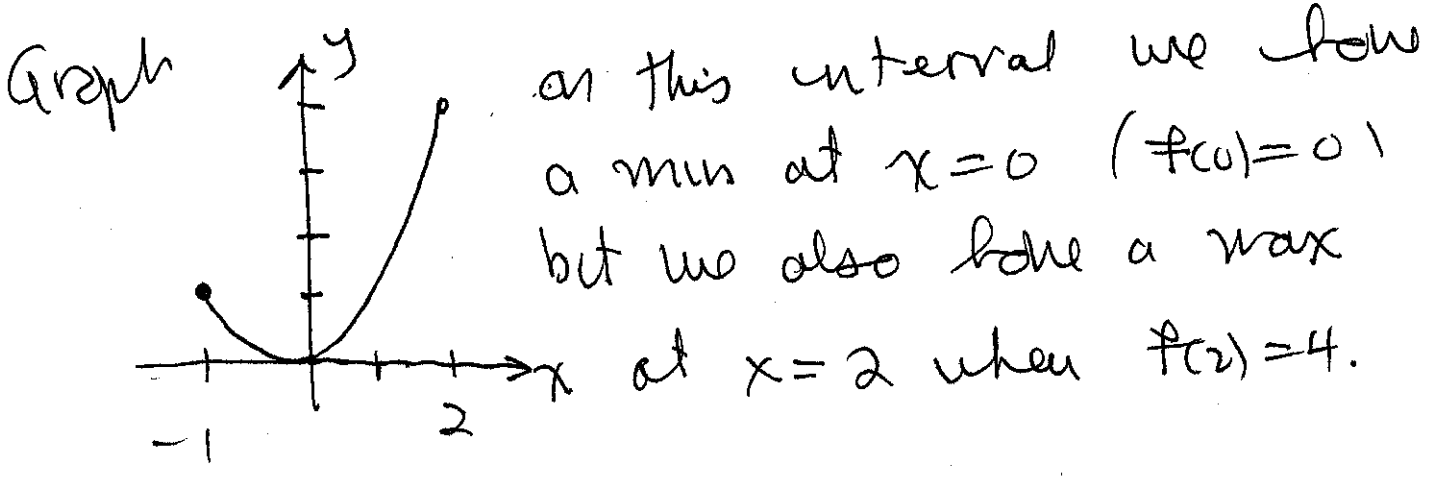 Graph
y
on this interval we have
a min at x=0 (f(0)=0)
but we also have a max
x at x=2 when f(2)=4.
-1
2